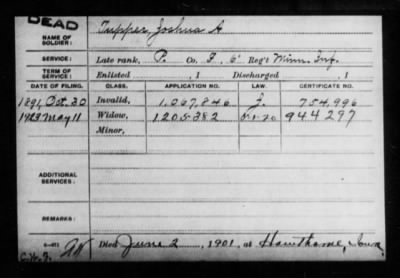 DEAD
NAME OF SOLDIER: Tupper, Joshua A
SERVICE: Late rank, P. Co. F, 6" Reg't Minn. Inf.
TERM OF SERVICE: Enlisted , 1 Discharged , 1
DATE OF FILING. CLASS. APPLICATION NO. LAW. CERTIFICATE NO.
1891, Oct. 30 Invalid, 1,067,846 J. 754,996
1923 May 11 Widow, 1205382 5-1-20 944297
Minor,
ADDITIONAL SERVICES:
REMARKS:
Died June 2, 1901, at Hawthorne, Iowa
C.W.